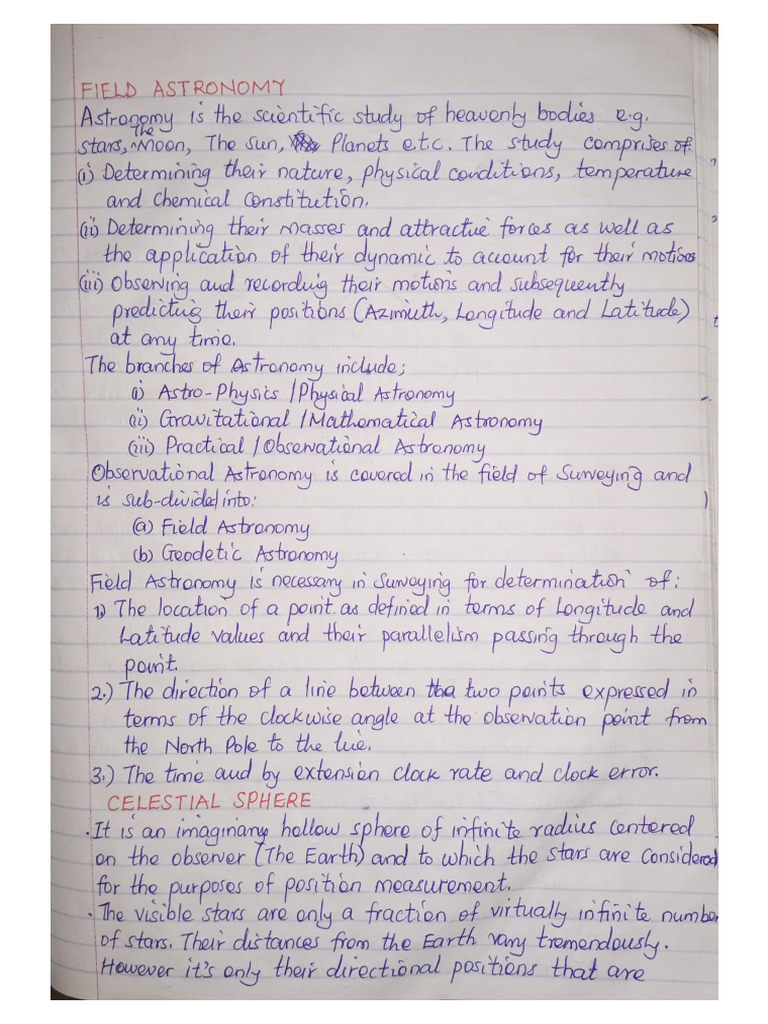 FIELD ASTRONOMY
Astronomy is the scientific study of heavenly bodies e.g.
stars, the Moon, The Sun, Planets e.t.c. The study comprises of:
(i) Determining their nature, physical conditions, temperature
and Chemical Constitution.
(ii) Determining their Masses and attractive forces as well as
the application of their dynamic to account for their motions
(iii) Observing and recording their motions and subsequently
predicting their positions (Azimuth, Longitude and Latitude)
at any time.
The branches of Astronomy include;
(i) Astro-Physics / Physical Astronomy
(ii) Gravitational / Mathematical Astronomy
(iii) Practical / Observational Astronomy
Observational Astronomy is covered in the field of Surveying and
is sub-divided into:
(a) Field Astronomy
(b) Geodetic Astronomy
Field Astronomy is necessary in Surveying for determination of:
1) The location of a point as defined in terms of Longitude and
Latitude values and their parallelism passing through the
point.
2.) The direction of a line between two points expressed in
terms of the clockwise angle at the observation point from
the North Pole to the line.
3.) The time and by extension clock rate and clock error.
CELESTIAL SPHERE
. It is an imaginary hollow sphere of infinite radius centered
on the observer (The Earth) and to which the stars are considered
for the purposes of position measurement.
. The visible stars are only a fraction of virtually infinite number
of stars. Their distances from the Earth vary tremendously.
However it's only their directional positions that are